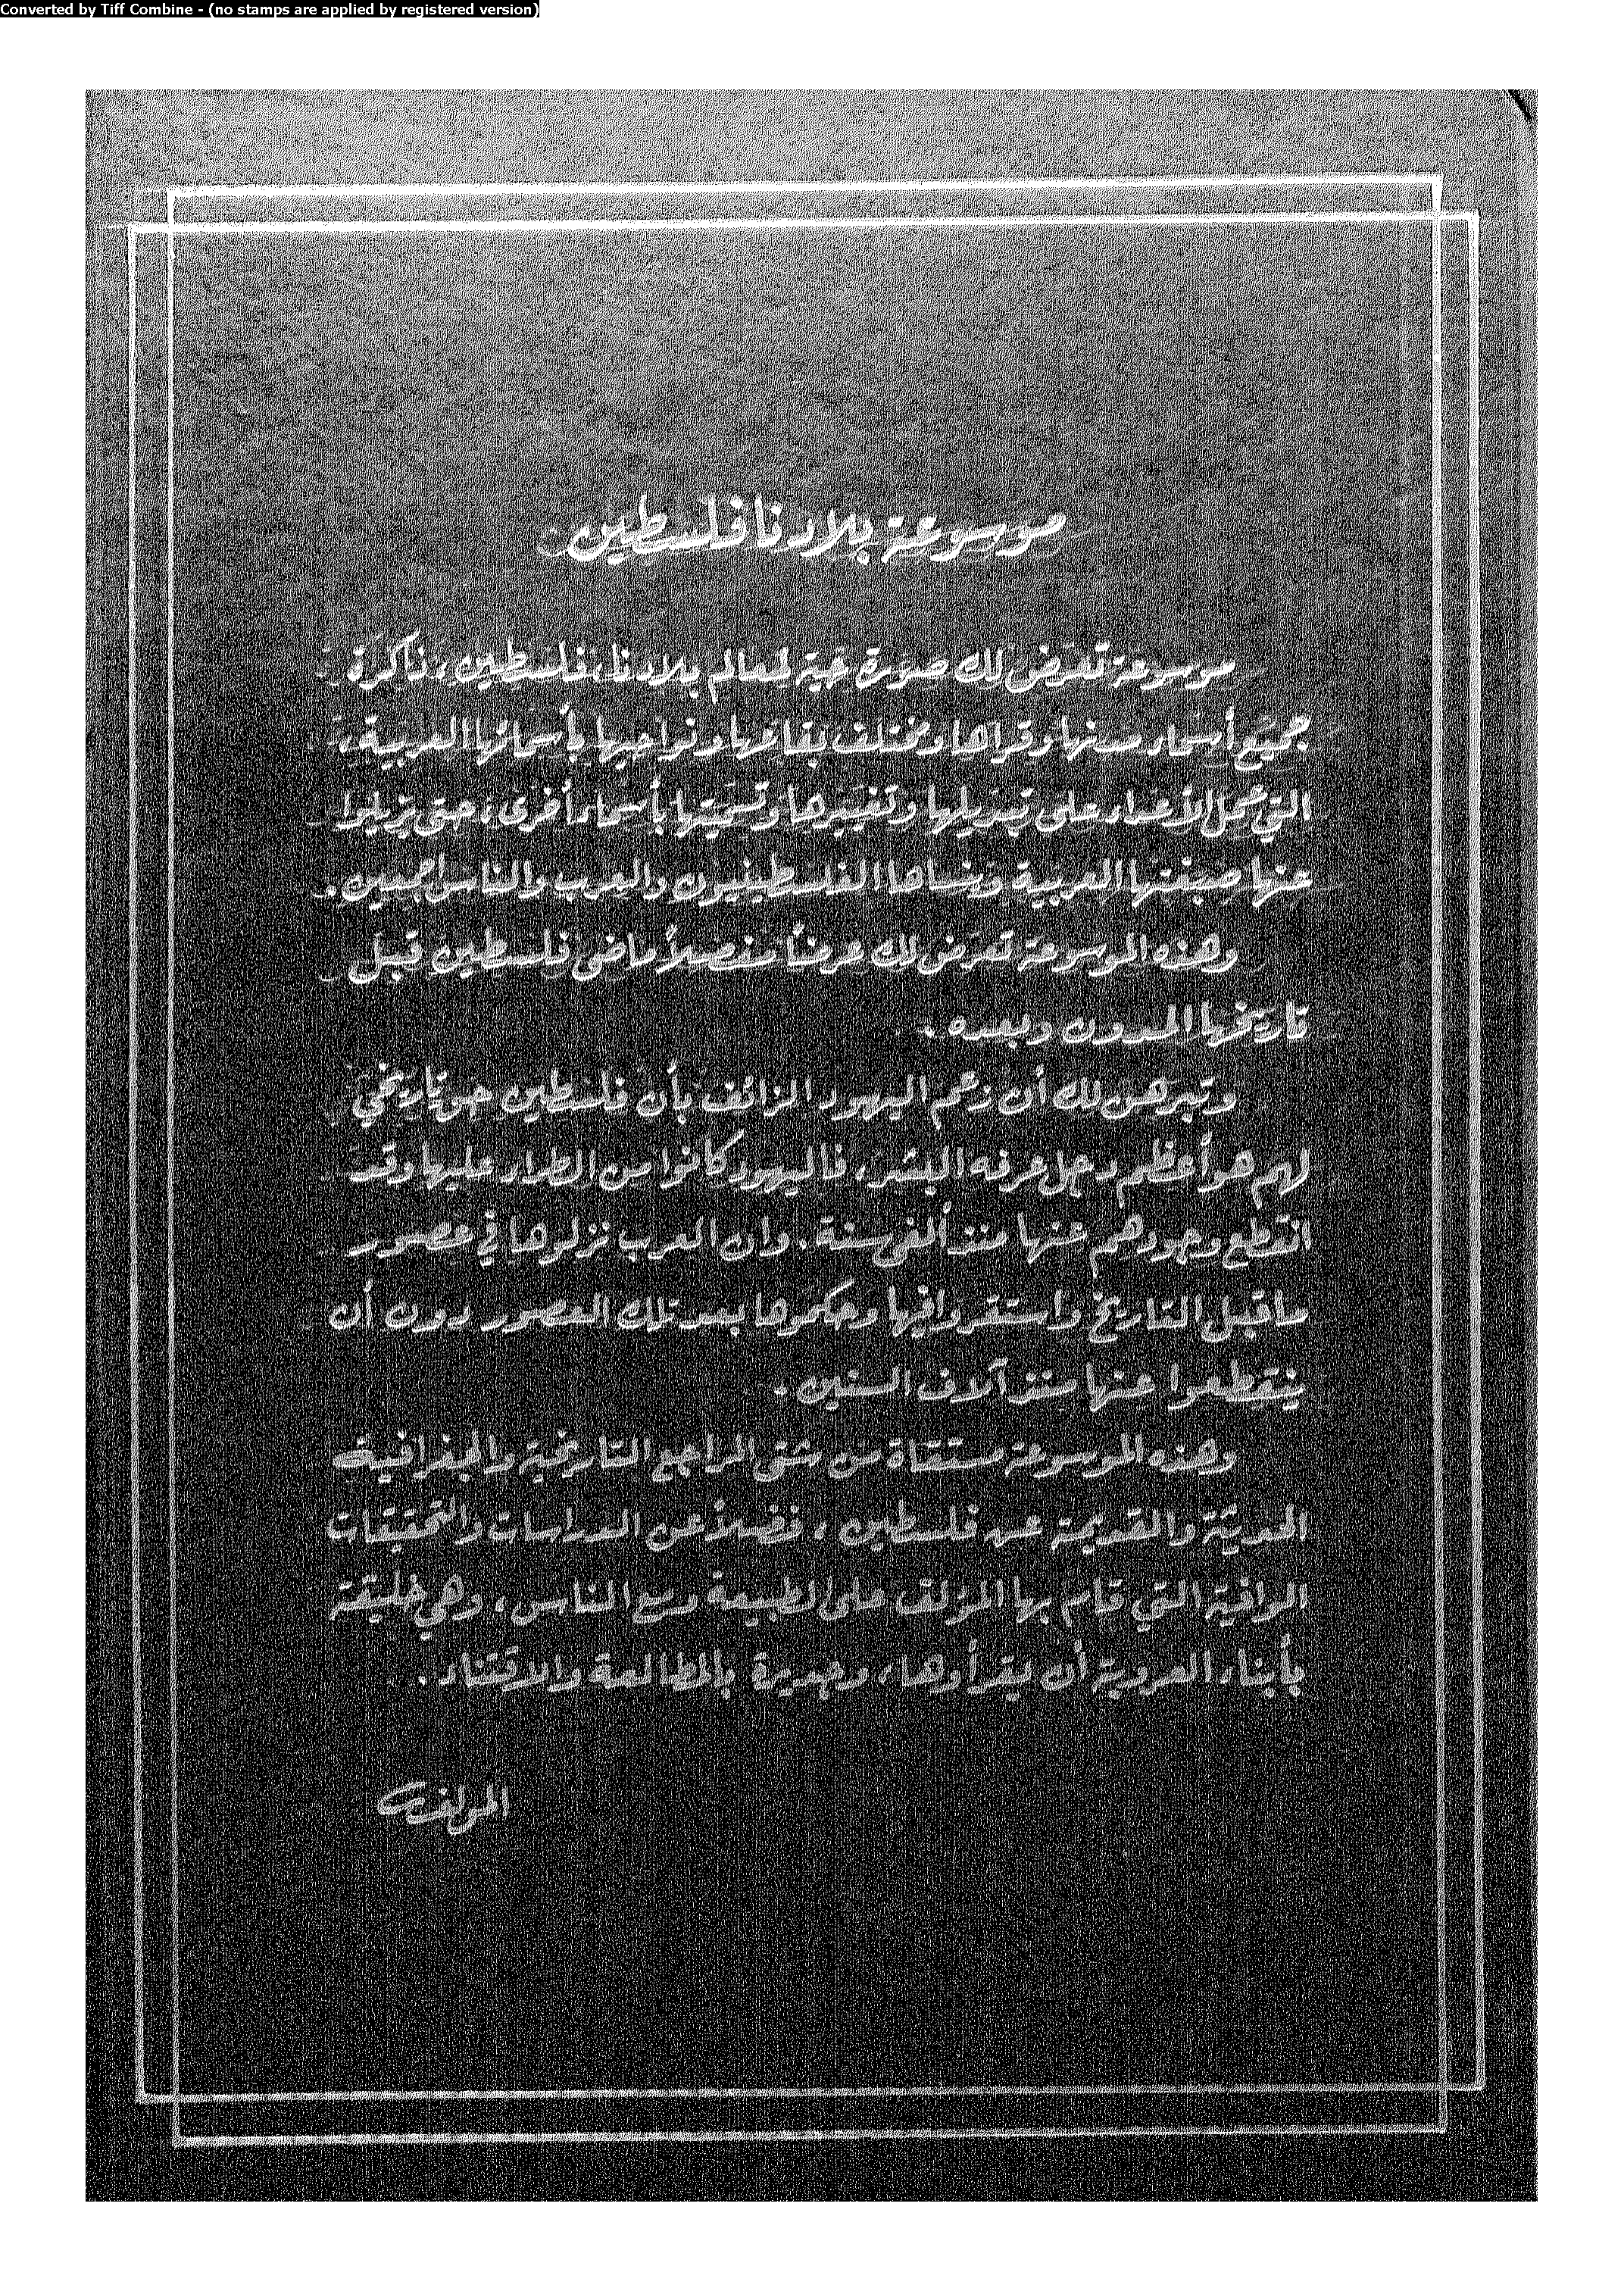 Converted by Tiff Combine - (no stamps are applied by registered version)
موسوعة بلادنا فلسطين
موسوعة تعرض لك صورة حية لمعالم بلادنا، فلسطين، ذاكرة
جميع أسماء مدنها وقراها ومختلف بقاعها ونواحيها بأسمائها العربية،
التي عمل الأعداء على تبديلها وتغييرها وتسميتها بأسماء أخرى، حتى يزيلوا
عنها صبغتها العربية وينساها الفلسطينيون والعرب والناس اجمعين.
وهذه الموسوعة تعرض لك عرضاً مفصلاً ماضي فلسطين قبل
تاريخها المدون وبعده.
وتبرهن لك أن زعم اليهود الزائف بأن فلسطين حق تاريخي
لهم هو أعظم دجل عرفه البشر، فاليهود كانوا من الطراء عليها وقد
انقطع وجودهم عنها منذ ألفي سنة. وان العرب نزلوها في عصور
ما قبل التاريخ واستقروا فيها وحكموها بعد تلك العصور دون أن
ينقطعوا عنها منذ آلاف السنين.
وهذه الموسوعة مستقاة من شتى المراجع التاريخية والجغرافية
الحديثة والقديمة عن فلسطين، فضلاً عن الدراسات والتحقيقات
الوافية التي قام بها المؤلف على الطبيعة ومع الناس، وهي خليقة
بأبناء العروبة أن يقرأوها، وجديرة بالمطالعة والاقتناء.
المؤلف